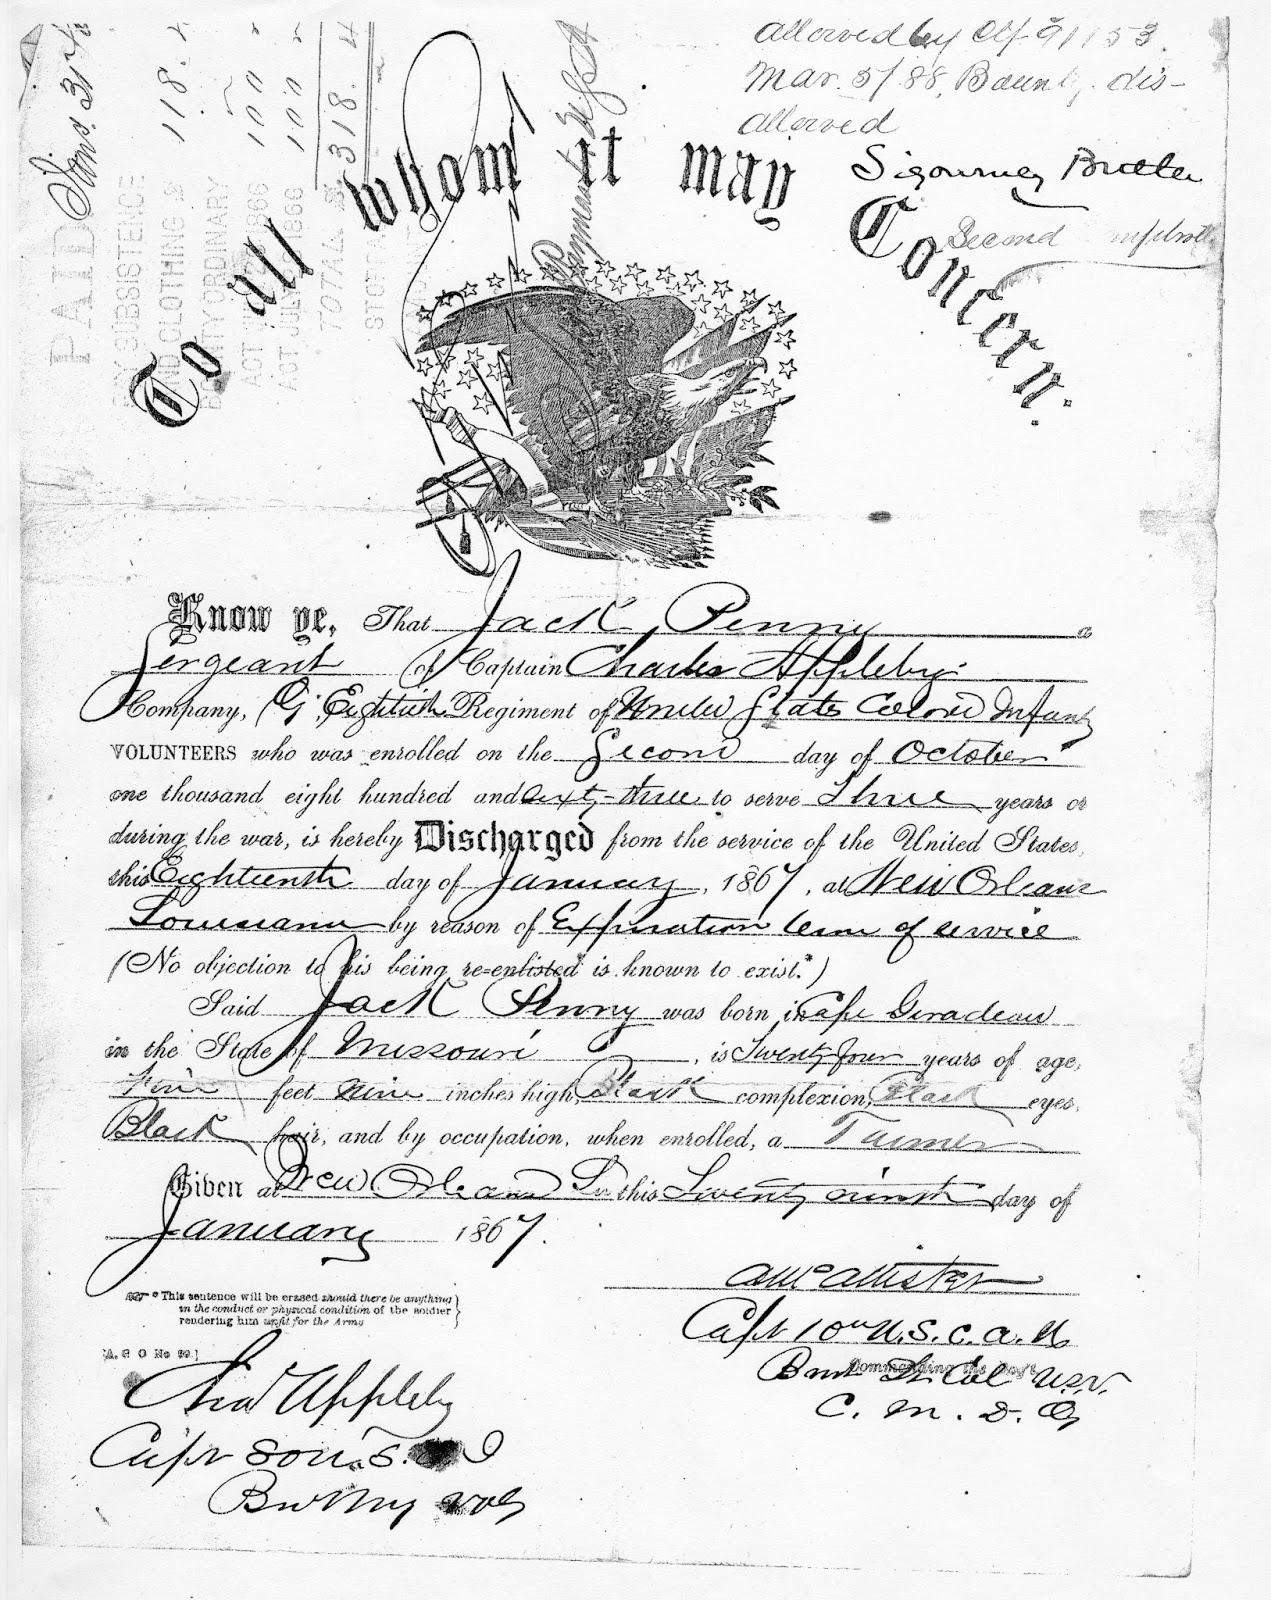 allowed by Ctf 91153.
Mar. 5/88, Bounty dis-
allowed
Sigourney Butler
Second Comptroller
PAID
PAY SUBSISTENCE
AND CLOTHING $ 118.
BOUNTY ORDINARY
ACT 1866 100
ACT JULY 1866 100
TOTAL $ 318.
To all whom it may Concern.
Know ye, That Jack Penny a
Sergeant of Captain Charles Appleby's
Company, (G) Eightieth Regiment of United States Colored Infantry
VOLUNTEERS who was enrolled on the Second day of October
one thousand eight hundred and sixty-three to serve Three years or
during the war, is hereby Discharged from the service of the United States,
this Eighteenth day of January, 1867, at New Orleans
Louisiana by reason of Expiration term of service
(No objection to his being re-enlisted is known to exist.*)
Said Jack Penny was born in Cape Giradeau
in the State of Missouri, is Twenty four years of age,
Five feet nine inches high, Black complexion, Black eyes,
Black hair, and by occupation, when enrolled, a
Given at New Orleans La this Twenty ninth day of
January 1867.
* This sentence will be erased should there be anything
in the conduct or physical condition of the soldier
rendering him unfit for the Army
[A. G O No 99.]
Chas Appleby
Capt 80th U.S. C I
Bvt Maj Vols
McAllister
Capt 10th U.S.C.A. H
Commanding the Post
Bvt Lt Col U.S.V.
C. M. D. G